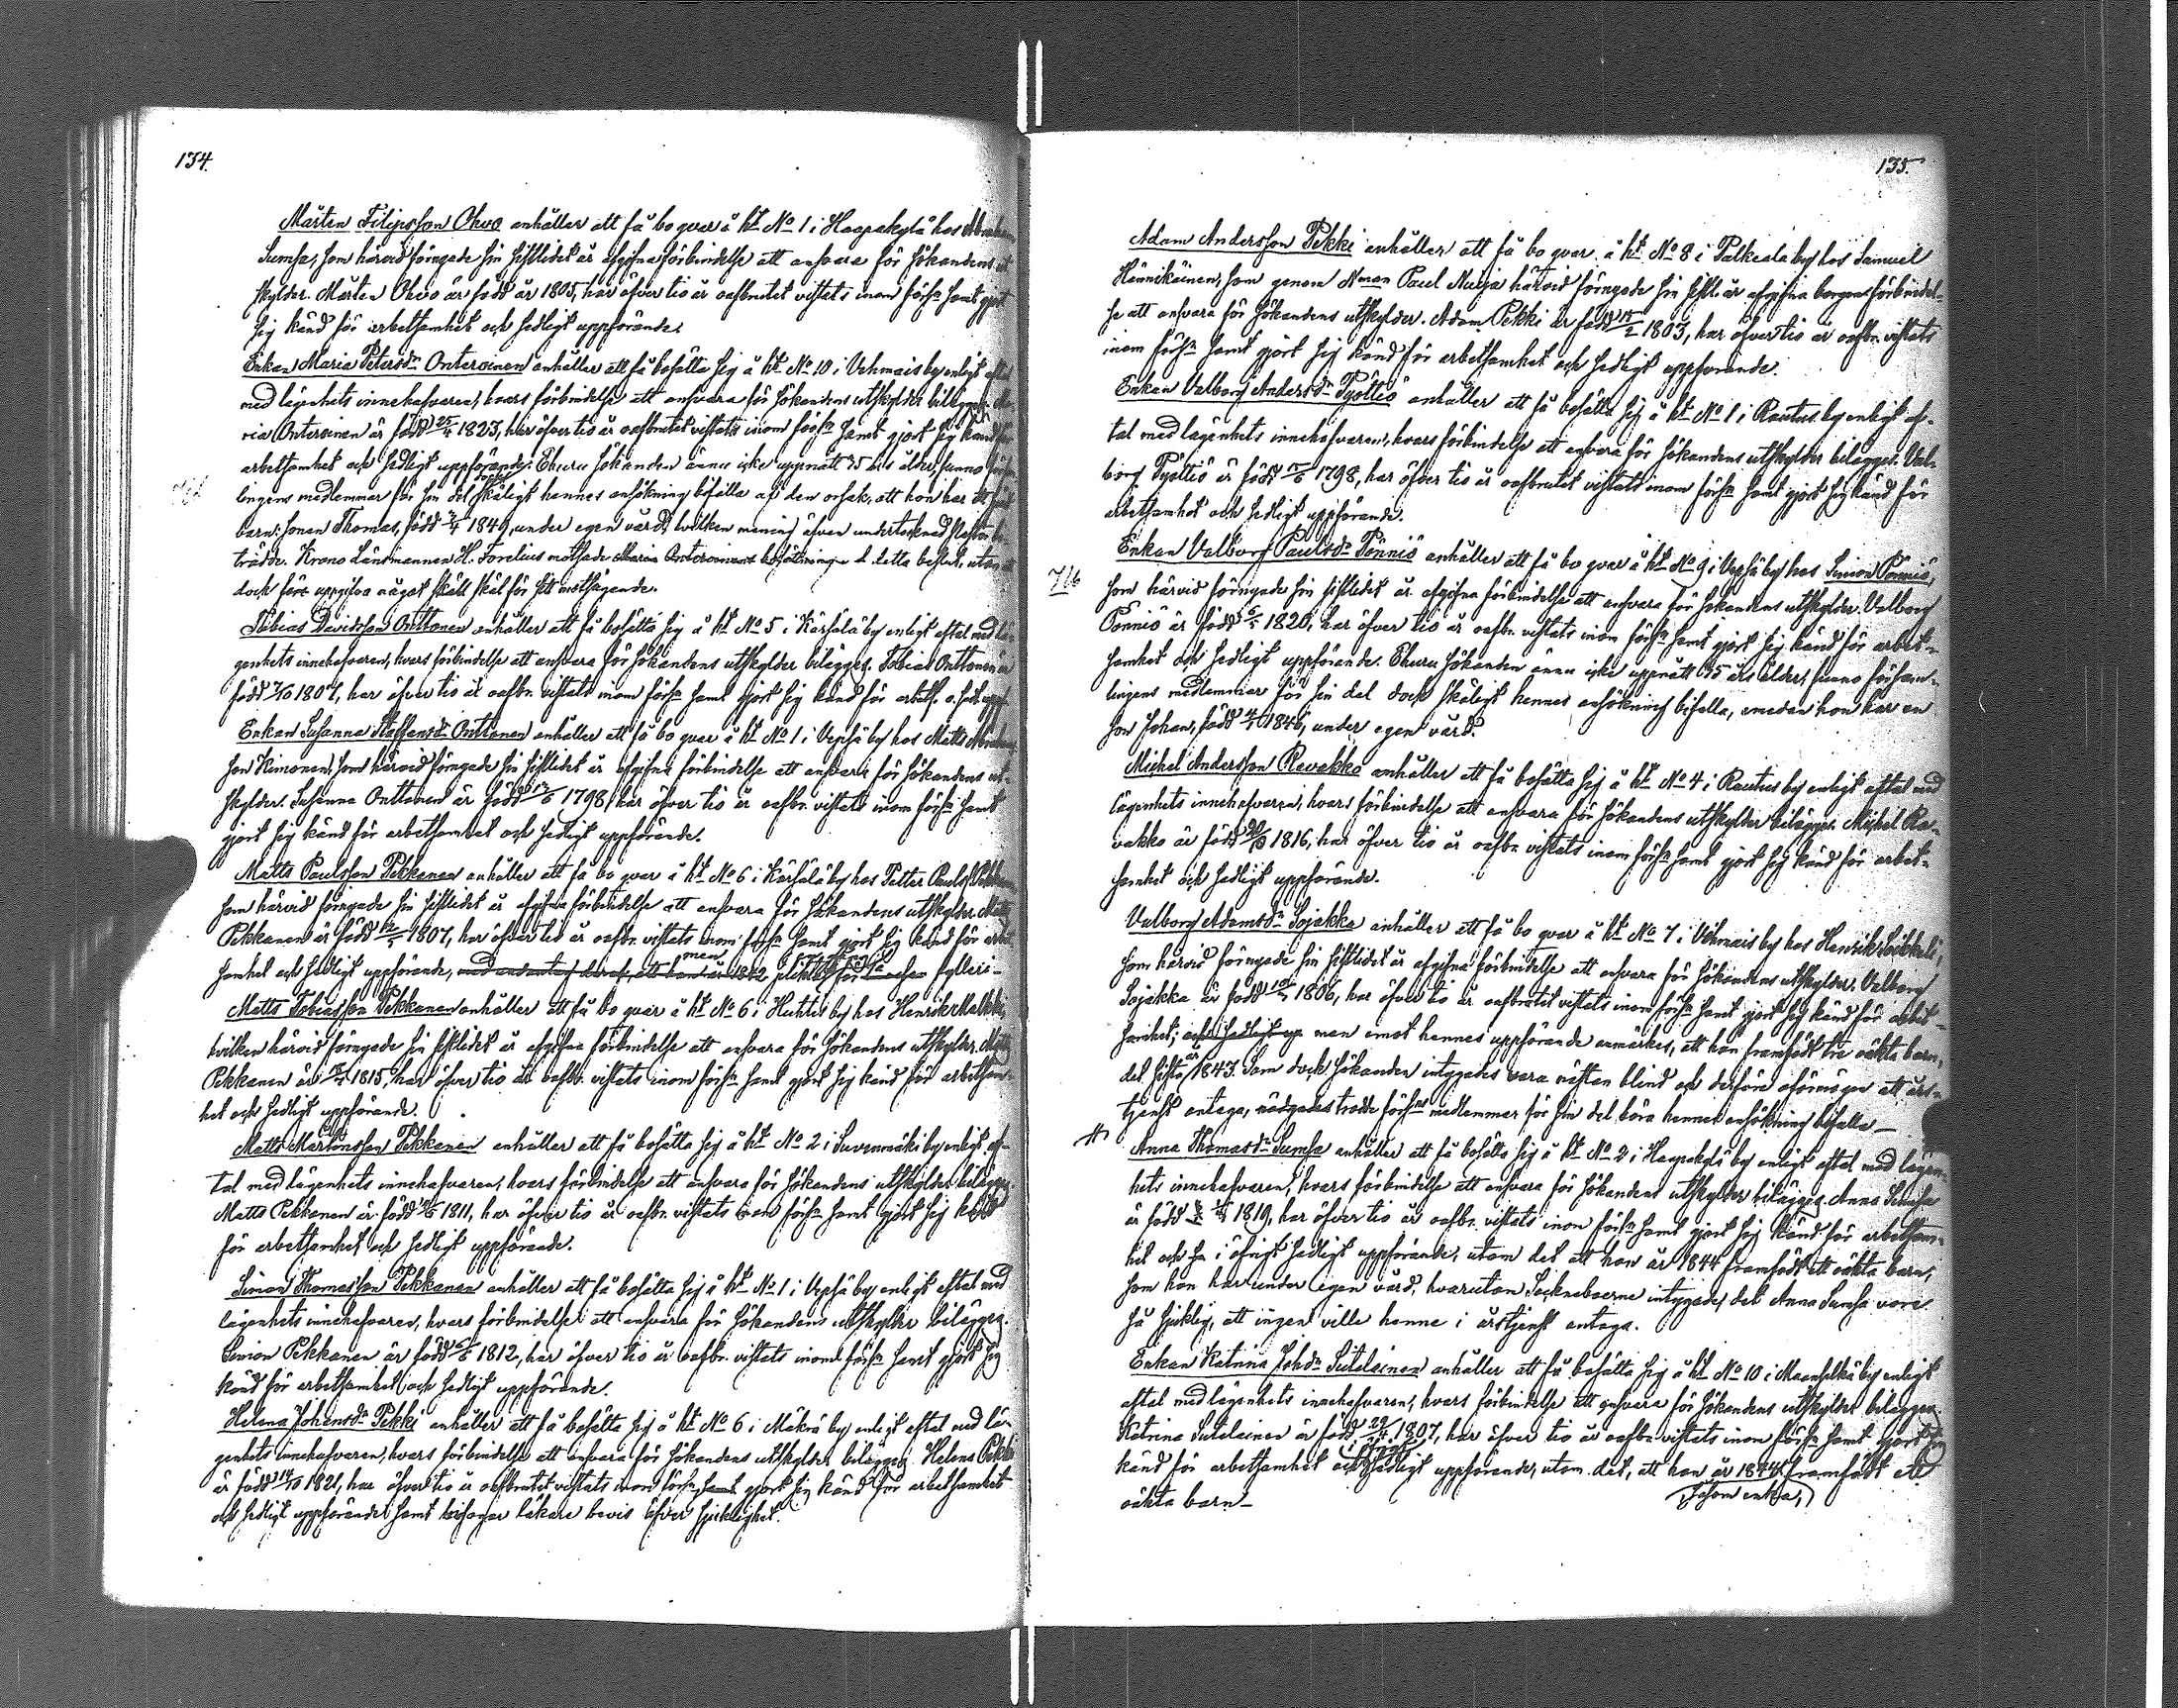 134.
Mårten Filipsson Ohvo anhåller att få bo qvar å ht No 1 i Haapakylä hos Abraham
Sumsa, som härvid förnyade sin sistlidet år afgifna förbindelse att ansvara för sökandens ut
skylder. Mårten Ohvo är född år 1805, har öfver tio år oafbrutet vistats inom förs:n samt gjort
sig känd för arbetsamhet och sedligt uppförande.
Enkan Maria Petersdr Onteroinen anhåller att få bosätta sig å ht No 10 i Vehmais by enligt aftal
med lägenhets innehafvaren, hvars förbindelse att ansvara för sökandens utskylder bilägges. Ma
ria Onteroinen är född 25/4 1823, har öfver tio år oafbrutet vistats inom förs:n samt gjort sig känd för
arbetsamhet och sedligt uppförande. Ehuru sökanden ännu icke uppnått 35 års ålder, funno försam
lingens medlemmar för sin del dock skäligt hennes ansökning bifalla af den orsak, att hon har ett
barn: sonen Thomas, född 3/4 1849, under egen vård, hvilken mening äfven undertecknad Pastor bi
trädde. Krono Länsmannen H. Forelius motsade Maria Onteroinens bosättning detta beslut, utan att
dock före uppgifva något skäl för sitt motsägande.
Tobias Davidsson Onttonen anhåller att få bosätta sig å ht No 5 i Kärsälä by enligt aftal med lä
genhets innehafvaren, hvars förbindelse att ansvara för sökandens utskylder bilägges. Tobias Onttonen är
född 7/10 1807, har öfver tio år oafbr. vistats inom förs:n samt gjort sig känd för arbets. o. sedl. uppf.
Enkan Susanna Staffansdr Onttonen anhåller att få bo qvar å ht No 1 i Vepsä by hos Matts Abrahams
son Kimonen, som härvid förnyade sin sistlidet år afgifna förbindelse att ansvara för sökandens ut
skylder. Susanna Onttonen är född 1798, har öfver tio år oafbr. vistats inom förs:n samt
gjort sig känd för arbetsamhet och sedligt uppförande.
Matts Paulsson Pekkanen anhåller att få bo qvar å ht No 6 i Kärsälä by hos Petter Paulss. Pekkanen,
som härvid förnyade sin sistlidet år afgifna förbindelse att ansvara för sökandens utskylder. Matts
Pekkanen är född 1807, har öfver tio år oafbr. vistats inom förs:n samt gjort sig känd för arbet
samhet och sedligt uppförande, med undantag deraf, att han är men 1842 pliktat för fylleri-
Matts Tobiasson Pekkanen anhåller att få bo qvar å ht No 6 i Huhtis by hos Henrik Malkki,
hvilken härvid förnyade sin sistlidet år afgifna förbindelse att ansvara för sökandens utskylder. Matts
Pekkanen är 1815, har öfver tio år oafbr. vistats inom förs:n samt gjort sig känd för arbetsam
het och sedligt uppförande.
Matts Mårtensson Pekkanen anhåller att få bosätta sig å ht No 2 i Suvenmäki by enligt af
tal med lägenhets innehafvaren, hvars förbindelse att ansvara för sökandens utskylder bilägges.
Matts Pekkanen är född 1811, har öfver tio år oafbr. vistats inom förs:n samt gjort sig känd
för arbetsamhet och sedligt uppförande.
Simon Thomasson Pekkanen anhåller att få bosätta sig å ht No 1 i Vepsä by enligt aftal med
lägenhets innehafvaren, hvars förbindelse att ansvara för sökandens utskylder bilägges.
Simon Pekkanen är född 1812, har öfver tio år oafbr. vistats inom förs:n samt gjort sig
känd för arbetsamhet och sedligt uppförande.
Helena Johansdr Pekki anhåller att få bosätta sig å ht No 6 i Mäkrä by enligt aftal med lä
genhets innehafvaren, hvars förbindelse att ansvara för sökandens utskylder bilägges. Helena Pekki
är född 14/10 1821, har öfver tio år oafbrutet vistats inom förs:n, samt gjort sig känd för arbetsamhet
och sedligt uppförande samt läkare bevis öfver sjuklighet.
135.
Adam Andersson Pekki anhåller att få bo qvar å ht No 8 i Palkeala by hos Samuel
Hännikäinen, som genom Nman Paul Muija härvid förnyade sin sistl. år afgifna borgensförbindel-
se att ansvara för sökandens utskylder. Adam Pekki är född 1803, har öfver tio år oafbr. vistats
inom förs:n samt gjort sig känd för arbetsamhet och sedligt uppförande.
Enkan Valborg Andersdr Pyöttiö anhåller att få bosätta sig å ht No 1 i Rautus by enligt af-
tal med lägenhets innehafvaren, hvars förbindelse att ansvara för sökandens utskylder bilägges. Val-
borg Pyöttiö är född 1798, har öfver tio år oafbrutet vistats inom förs:n samt gjort sig känd för
arbetsamhet och sedligt uppförande.
Enkan Valborg Paulsdr Pönniö anhåller att få bo qvar å ht No 9 i Vepsä by hos Simon Pönniö,
716 som härvid förnyade sin sistlidet år afgifna förbindelse att ansvara för sökandens utskylder. Valborg
Pönniö är född 1820, har öfver tio år oafbr. vistats inom förs:n samt gjort sig känd för arbet-
samhet och sedligt uppförande. Ehuru sökanden ännu icke uppnått 35 års ålder, funno försam-
lingens medlemmar för sin del dock skäligt hennes ansökning bifalla, emedan hon har en
son Johan, född 4/1 1846, under egen vård.
Michel Andersson Ravakko anhåller att få bosätta sig å ht No 4 i Rautus by enligt aftal med
lägenhets innehafvaren, hvars förbindelse att ansvara för sökandens utskylder bilägges. Michel Ra-
vakko är född 1816, har öfver tio år oafbr. vistats inom förs:n samt gjort sig känd för arbet-
samhet och sedligt uppförande.
Valborg Adamsdr Sojakka anhåller att få bo qvar å ht No 7 i Vehmais by hos Henrik
som härvid förnyade sin sistlidet år afgifna förbindelse att ansvara för sökandens utskylder. Valborg
Sojakka är född 1806, har öfver tio år oafbrutet vistats inom förs:n samt gjort sig känd för arbet-
samhet; och sedligt up men emot hennes uppförande anmärkes, att hon framfödt tre oäkta barn,
det sista år 1843. Som dock sökanden intygades vara nästan blind och derföre oförmögen att års-
tjenst antaga, trodde förs:ns medlemmar för sin del böra hennes ansökning bifalla –
Anna Thomasdr Sumsa anhåller att få bosätta sig å ht No 2 i Haapakylä by enligt aftal med lägen
hets innehafvaren, hvars förbindelse att ansvara för sökandens utskylder bilägges. Anna Sumsa
är född 1819, har öfver tio år oafbr. vistats inom förs:n samt gjort sig känd för arbetsam-
het och för i öfrigt sedligt uppförande, utom det att hon år 1844 framfödt ett oäkta barn,
som hon har under egen vård, hvarutom Socknebo​erne intygade, det Anna Sumsa vore
så sjuklig, att ingen ville henne i årstjenst antaga.
Enkan Katrina Johdr Sutelainen anhåller att få bosätta sig å ht No 10 i Maanselkä by enligt
aftal med lägenhets innehafvaren, hvars förbindelse att ansvara för sökandens utskylder bilägges.
Katrina Sutelainen är född 29/4 1807, har öfver tio år oafbr. vistats inom förs:n samt gjort sig
känd för arbetsamhet och i öfrigt sedligt uppförande, utom det, att hon år 1844 framfödt ett
såsom enka,
oäkta barn –